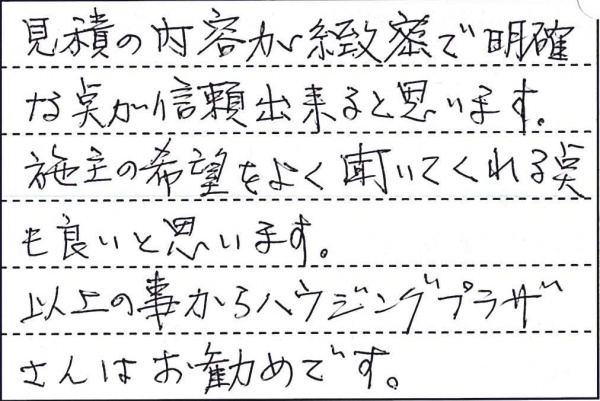 見積の内容が緻密で明確
な点が信頼出来ると思います。
施主の希望をよく聞いてくれる点
も良いと思います。
以上の事からハウジングプラザ
さんはお勧めです。